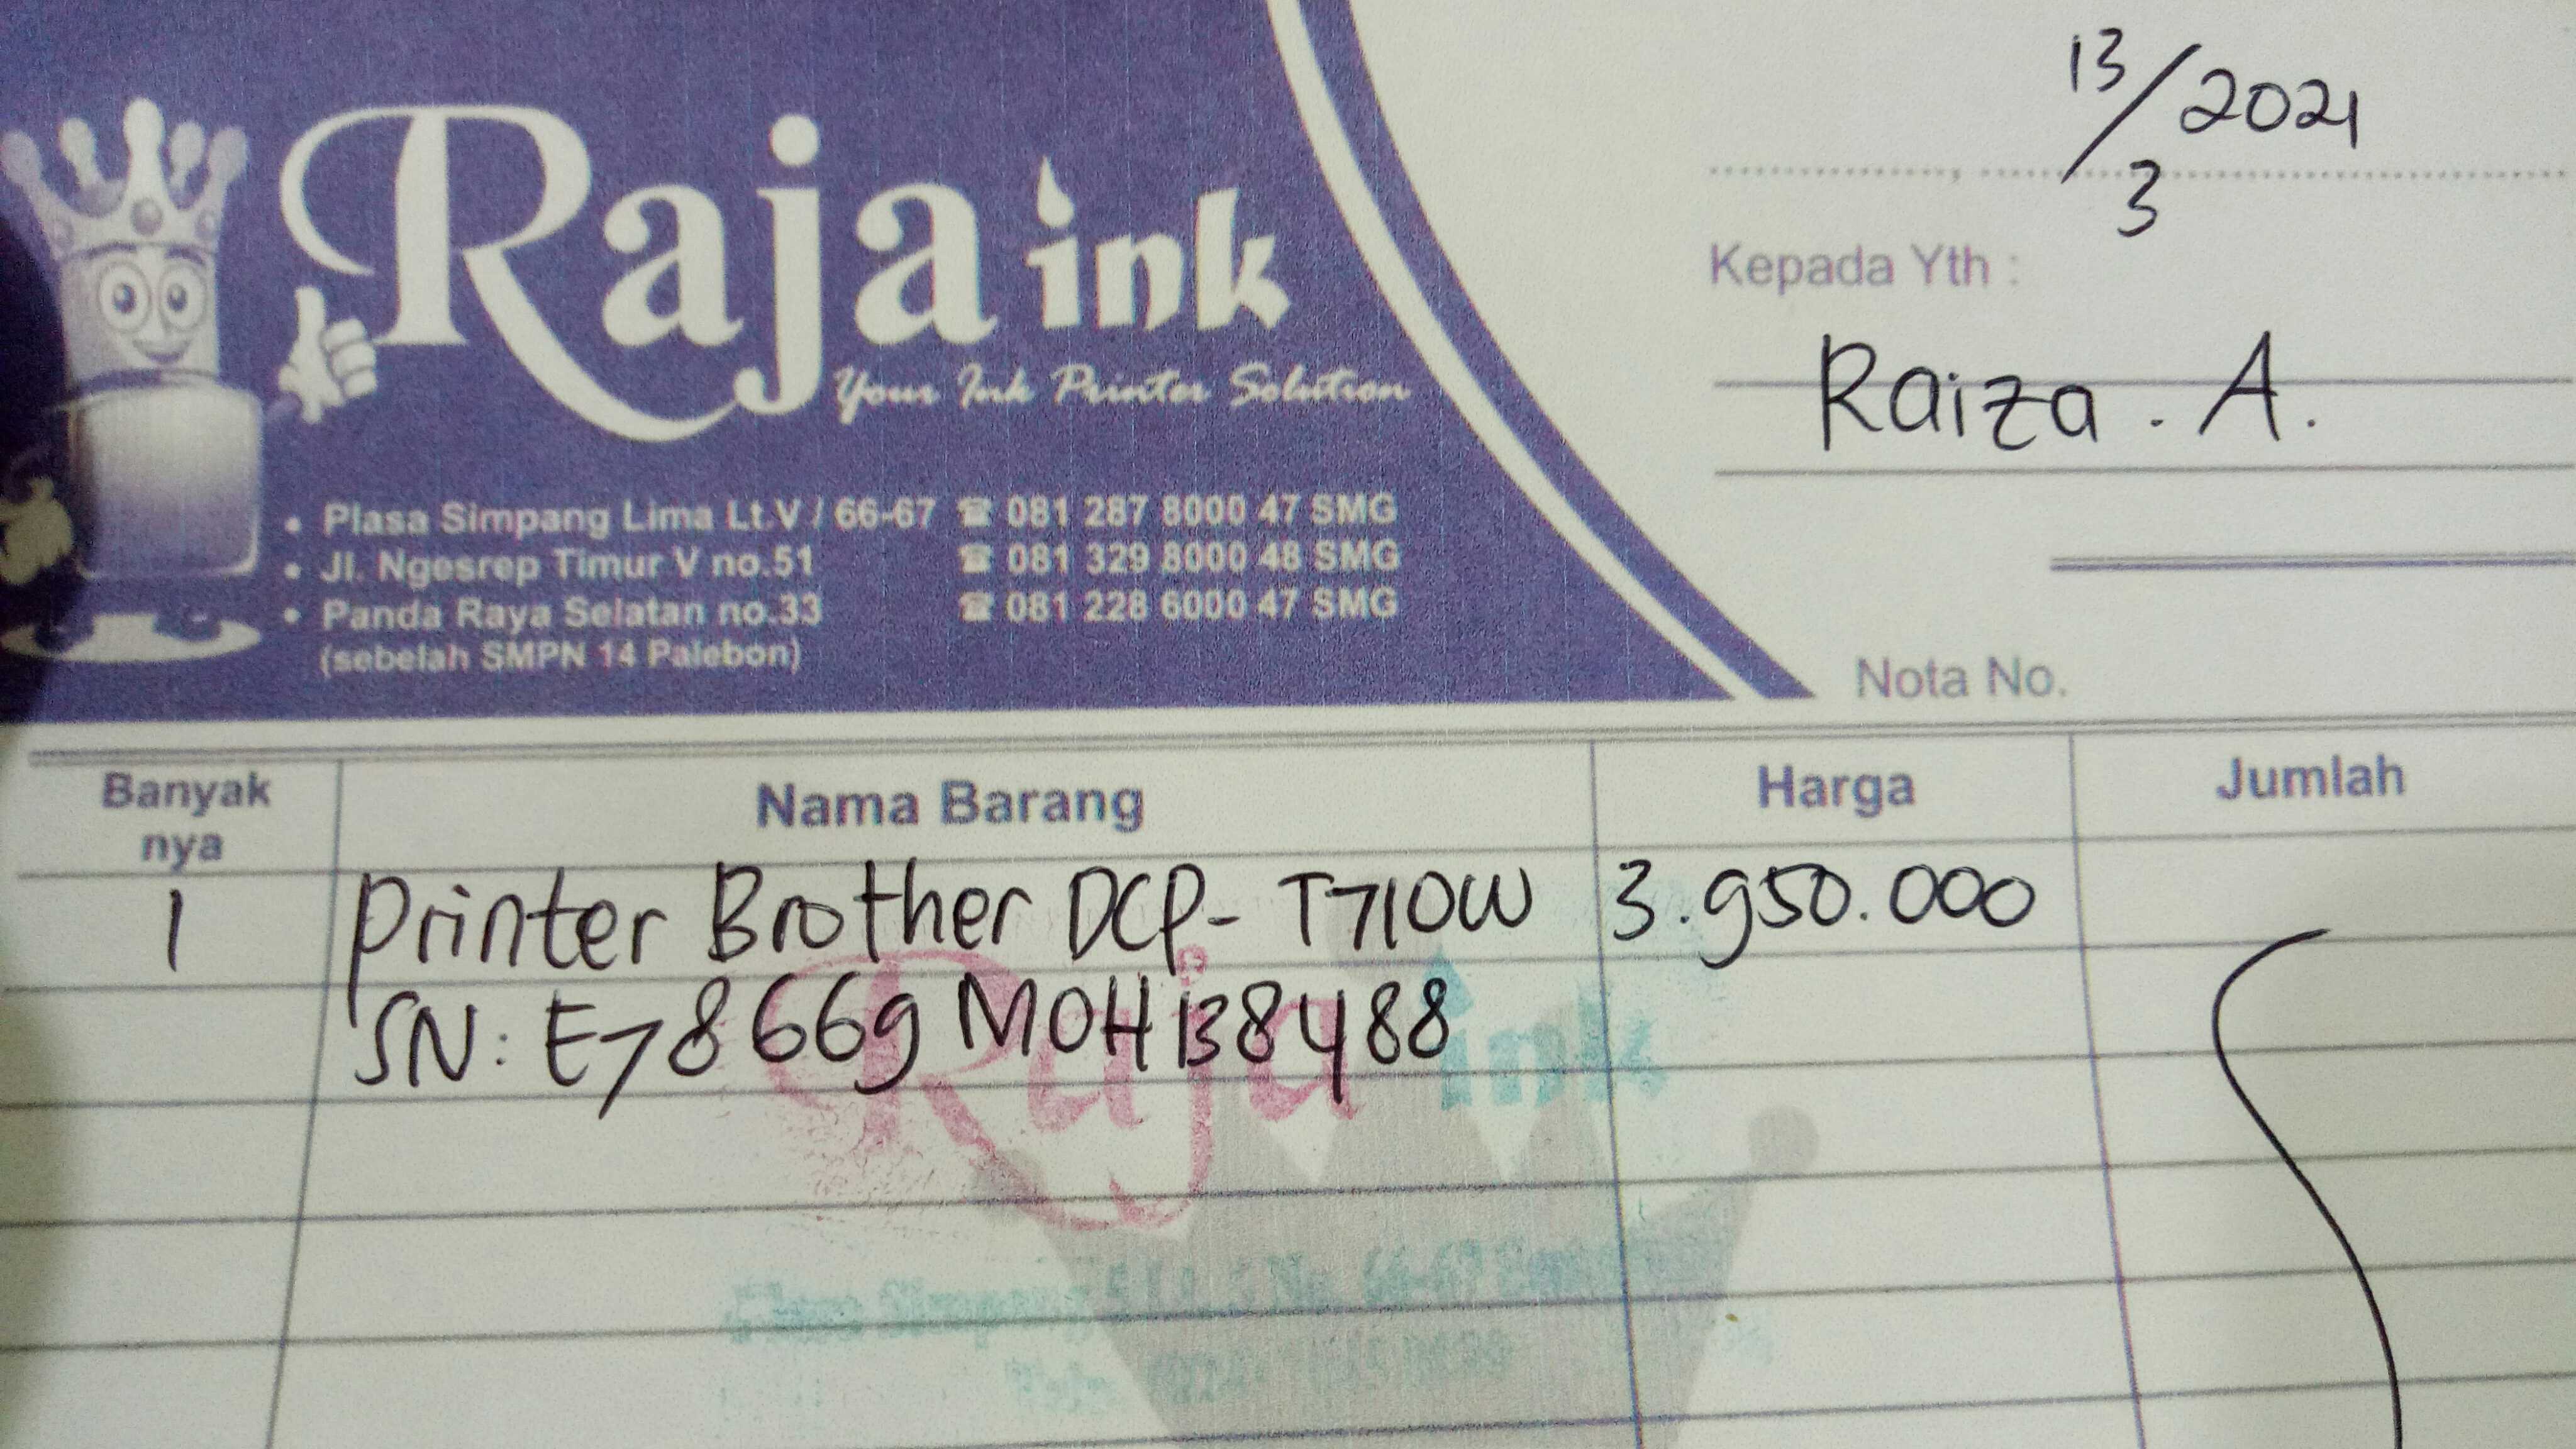 Raja ink
Your Ink Printer Solution
• Plasa Simpang Lima Lt.V / 66-67 ☎ 081 287 8000 47 SMG
• Jl. Ngesrep Timur V no.51 ☎ 081 329 8000 48 SMG
• Panda Raya Selatan no.33 ☎ 081 228 6000 47 SMG
(sebelah SMPN 14 Palebon)
13/3 2021
Kepada Yth :
Raiza . A.
Nota No.
Banyak nya Nama Barang Harga Jumlah
1 Printer Brother DCP- T710W 3.950.000
SN: E78669M0H138488
Raja ink